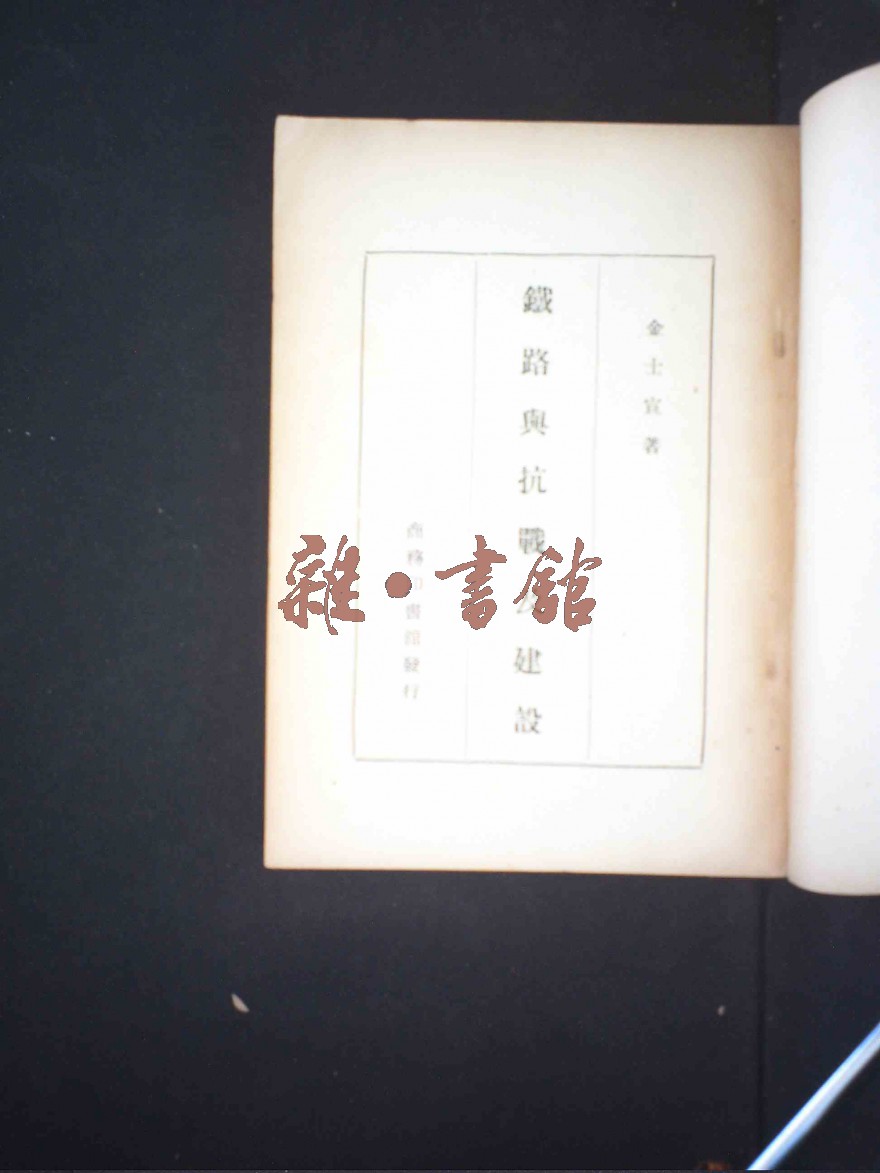 金士宣著
鐵路與抗戰及建設
商務印書館發行
雜•書館